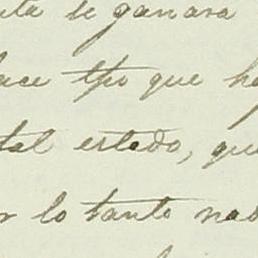 se ganara
ace tpo que ha
tal estado, que
r lo tanto nad